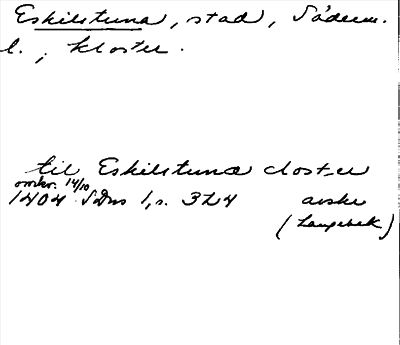 Eskilstuna, stad, Söderm.
l., kloster.
til Eskilstuna closter
omkr. 14/10
1404 SDns 1, s. 324 avskr
(Langebek)